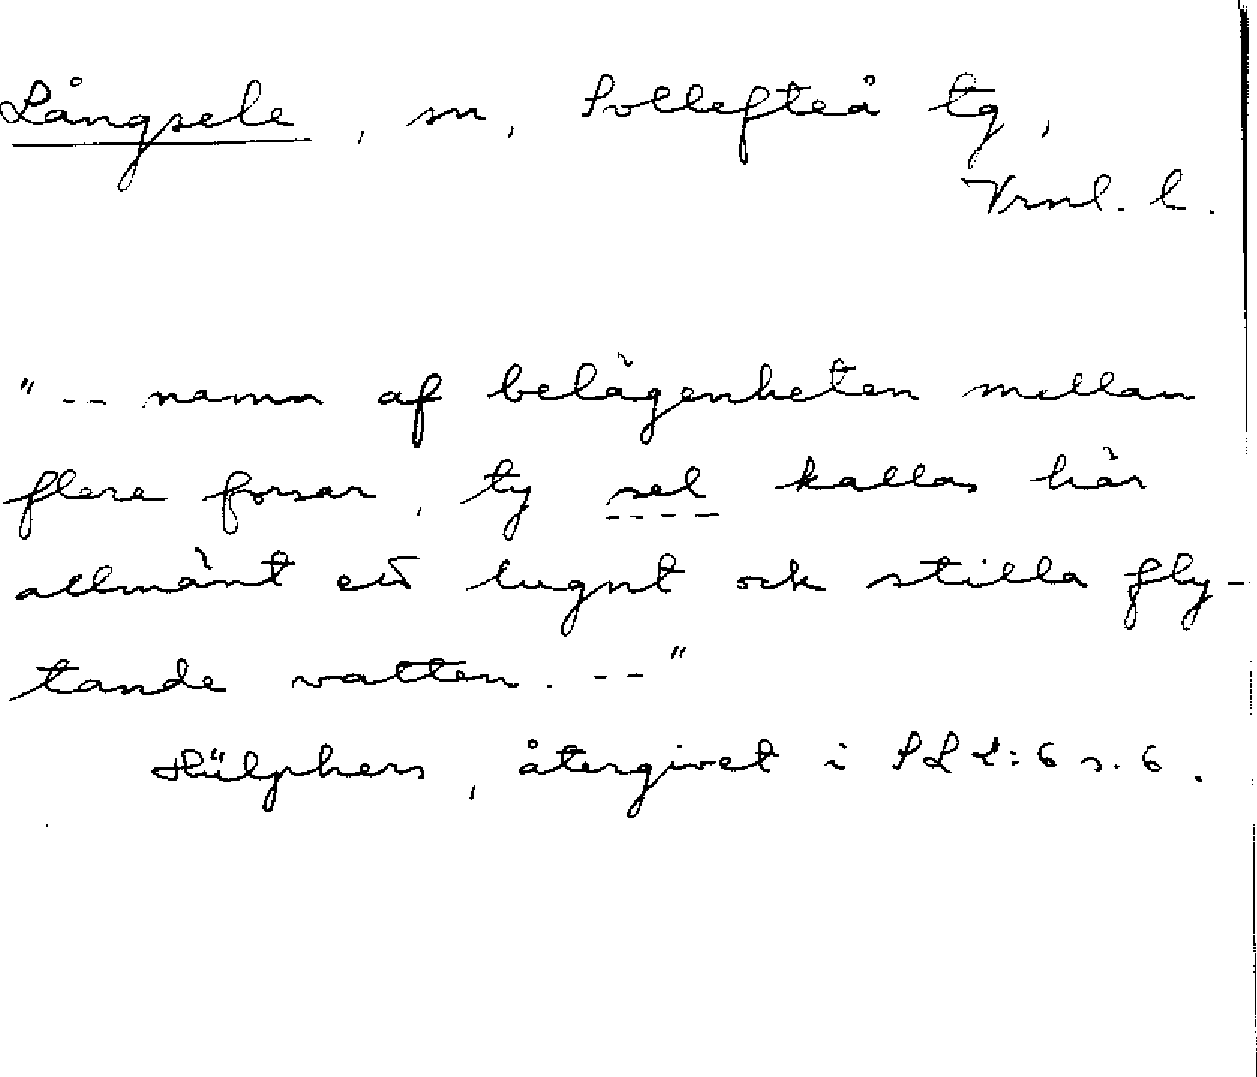 Långsele, sn, Sollefteå tg,
Vrnl. l.
"-- namn af belägenheten mellan
flere forsar, ty sel kallas här
allmänt ett lugnt och stilla fly-
tande vatten. --"
Hülphers, återgivet i SL 2:6 s. 6.